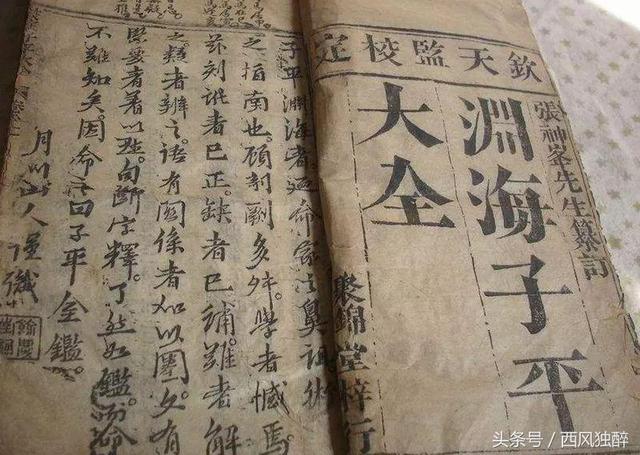 欽天監校定
張神峯先生纂訂
淵海子平
大全
聚錦堂梓行
子平淵海者迺命家之鼻祖術
之指南也。顧剞劂多舛。學者憾焉
茲刻訛者已正。缺者已補。難者解
之。疑者辨之。語有關係者加以圈。文有
要者著以。句斷字釋。了然如鑑。而命
不難知矣。因命之曰子平全鑑。
月山人謹識
头条号／西风独醉